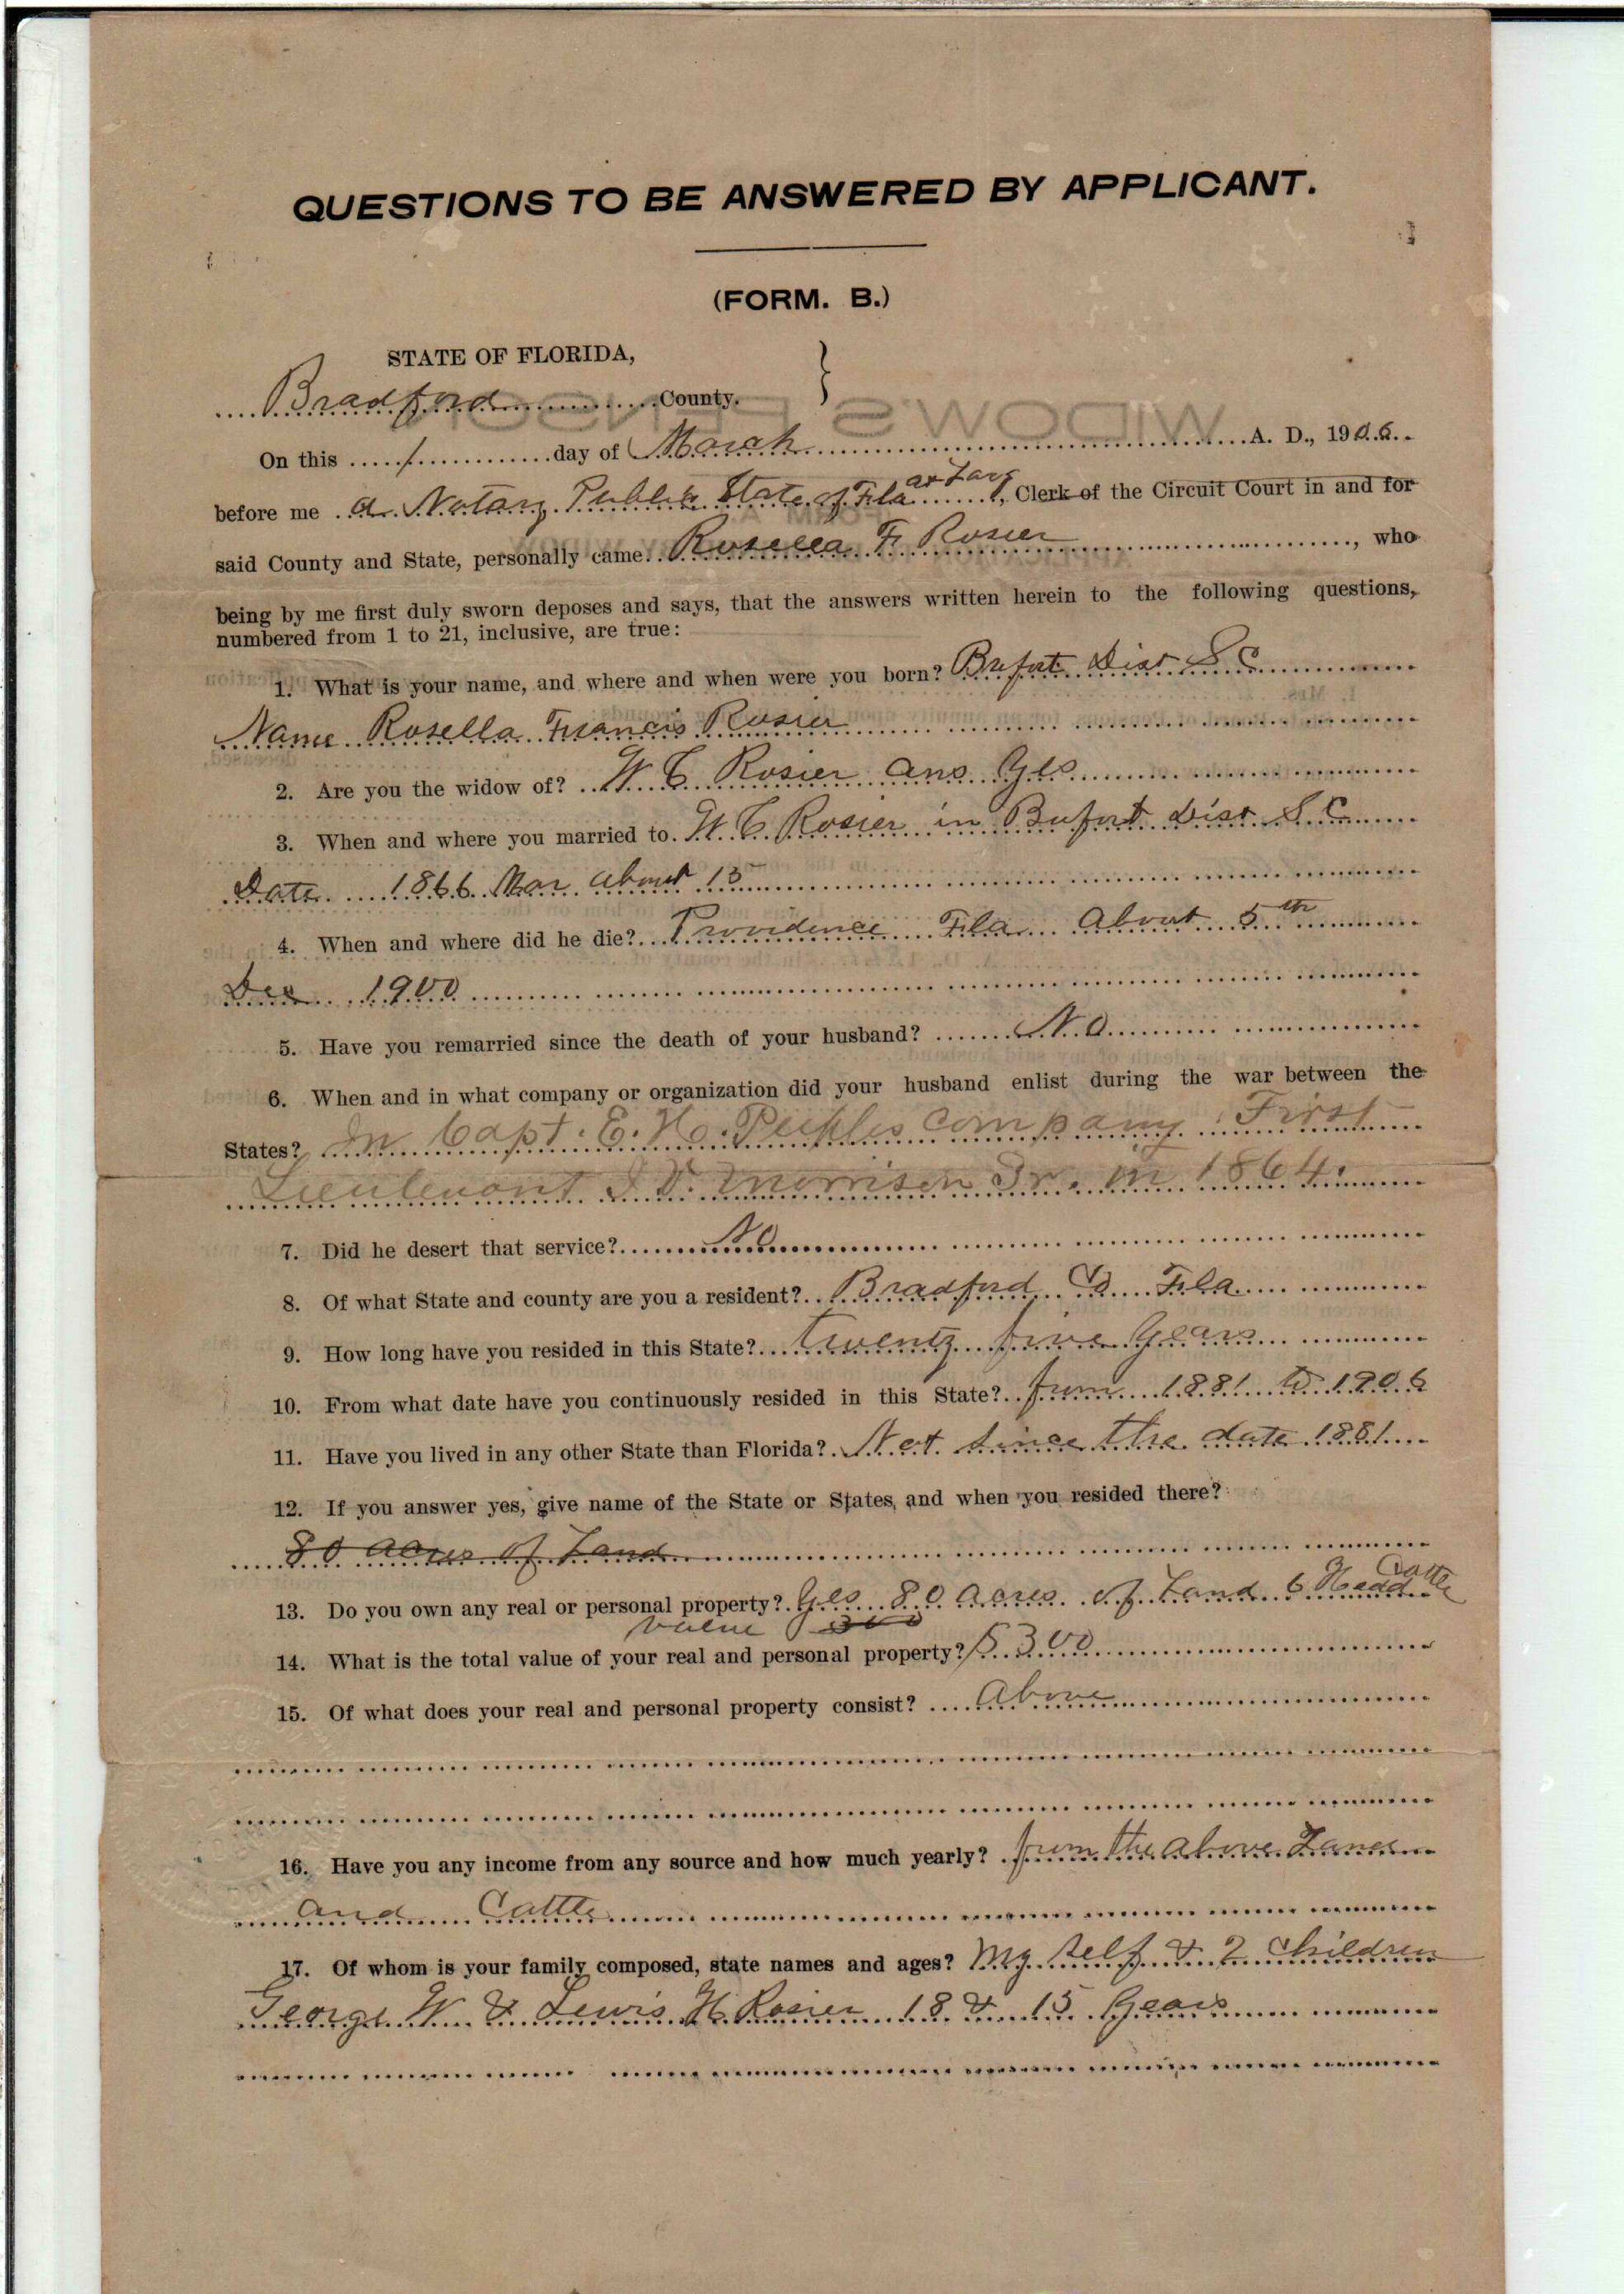 QUESTIONS TO BE ANSWERED BY APPLICANT.
(FORM. B.)
STATE OF FLORIDA,
Bradford County.
On this 1 day of March A. D., 1906
before me a Notary Public State of Fla at Larg, Clerk of the Circuit Court in and for
said County and State, personally came Rosella F Rosier, who
being by me first duly sworn deposes and says, that the answers written herein to the following questions,
numbered from 1 to 21, inclusive, are true:
1. What is your name, and where and when were you born? Bufort Dist S C
Name Rosella Francis Rosier
2. Are you the widow of? W C Rosier Ans Yes
3. When and where you married to W C Rosier in Bufort Dist S C
Date 1866 Mar about 15
4. When and where did he die? Providence Fla About 5th
Dec 1900
5. Have you remarried since the death of your husband? No
6. When and in what company or organization did your husband enlist during the war between the
States? In Capt. E. H. Peeples Company First
Lieutenant J. D. Morrison Sr. in 1864.
7. Did he desert that service? No
8. Of what State and county are you a resident? Bradford Co Fla
9. How long have you resided in this State? twenty five Years
10. From what date have you continuously resided in this State? from 1881 to 1906
11. Have you lived in any other State than Florida? Not since the date 1881
12. If you answer yes, give name of the State or States, and when you resided there?
80 acres of Land
13. Do you own any real or personal property? Yes 80 acres of Land 6 Head Cattle
value 300
14. What is the total value of your real and personal property? $ 300
15. Of what does your real and personal property consist? Above
16. Have you any income from any source and how much yearly? from the above Land
and Cattle
17. Of whom is your family composed, state names and ages? My self & 2 Children
George W & Lewis H Rosier 18 & 15 Years